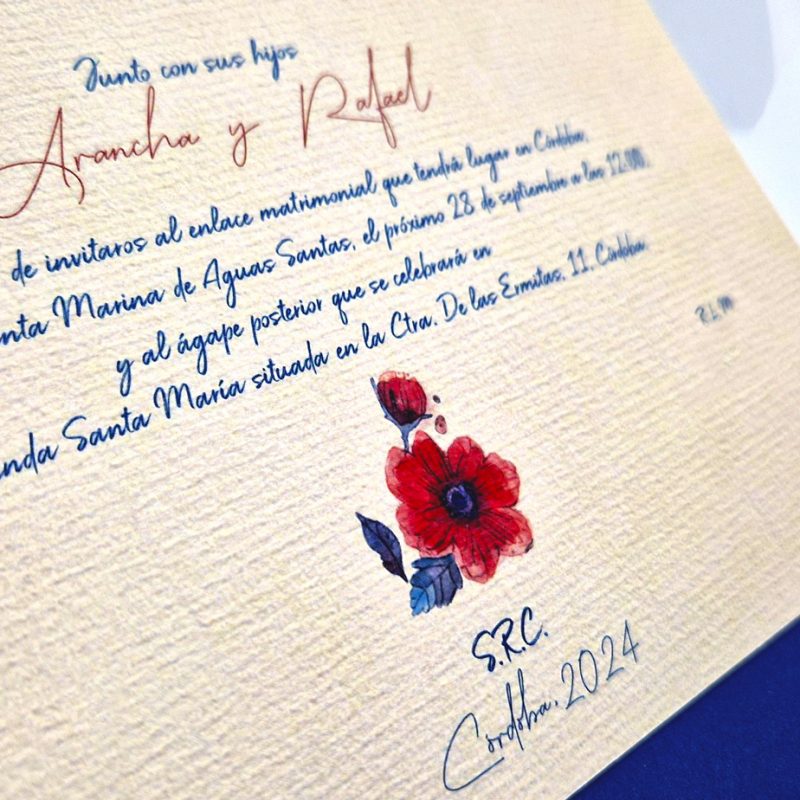 Junto con sus hijos
Arancha y Rafael
de invitaros al enlace matrimonial que tendrá lugar en Córdoba,
Marina de Aguas Santas, el próximo 28 de septiembre a las 12:00,
y al ágape posterior que se celebrará en
Santa María situada en la Ctra. De las Ermitas, 11, Córdoba.
S.R.C.
Córdoba, 2024